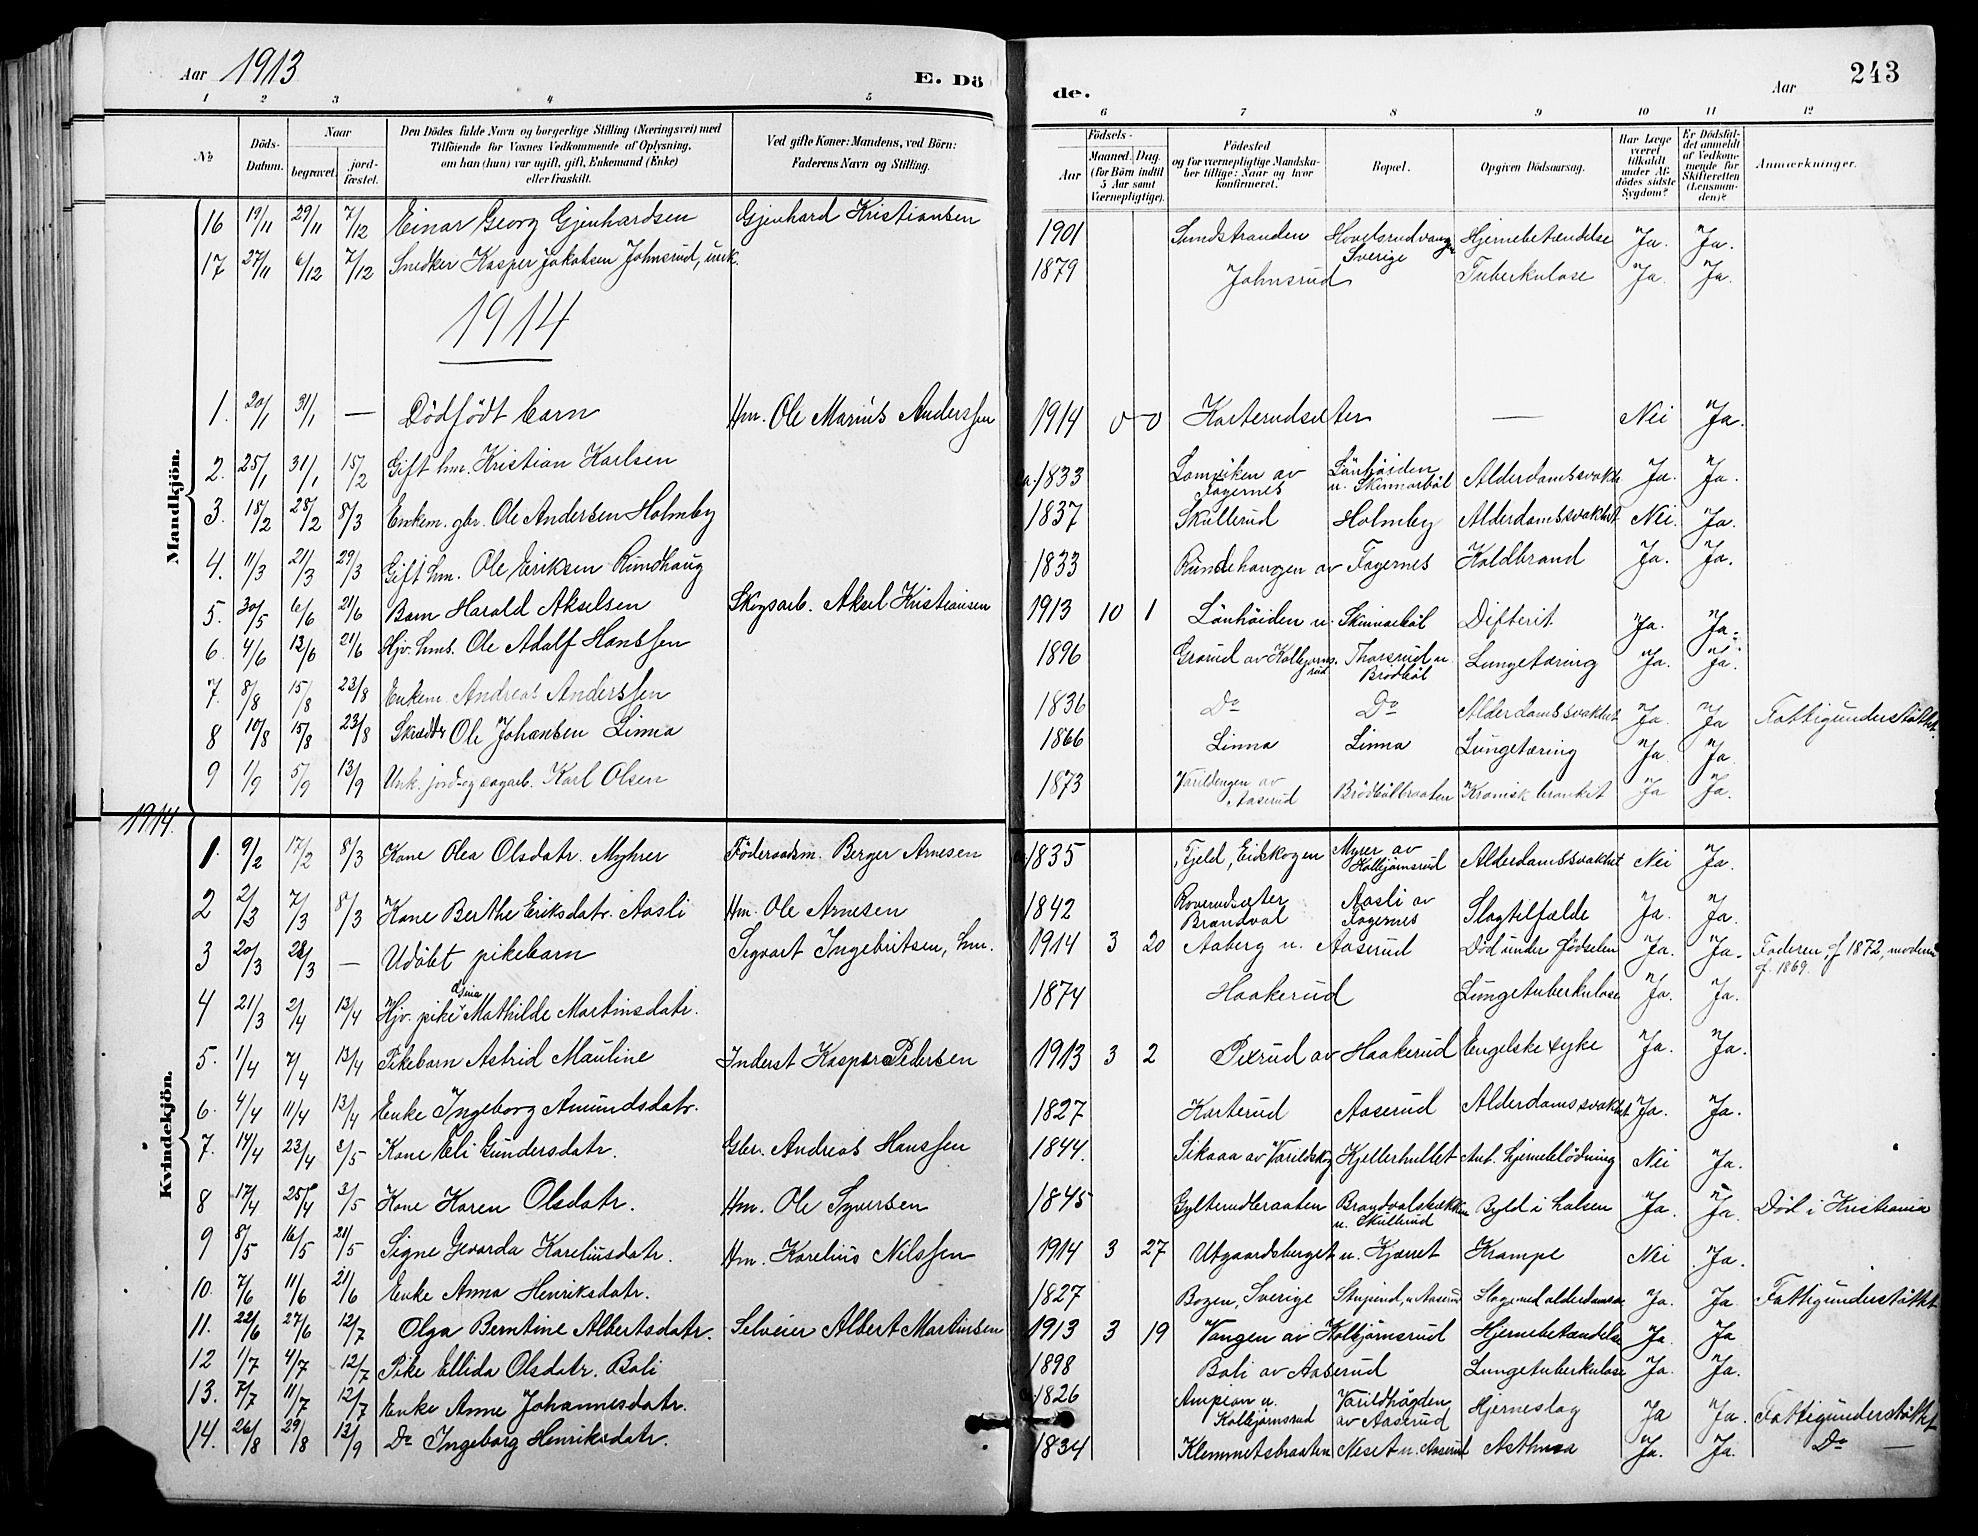 Aar 1913
E. Dö
de.
Aar
243
1 2 3 4 5
6 7 8 9 10 11 12
№
Döds-Datum.
Naar
begravet.
jordfæstet.
Den Dödes fulde Navn og borgerlige Stilling (Næringsvei) med
Tilföiende for Voxnes Vedkommende af Oplysning,
om han (hun) var ugift, gift, Enkemand (Enke)
eller fraskilt.
Ved gifte Koner: Mandens, ved Börn:
Faderens Navn og Stilling.
Födsels-
Aar
Maaned. Dag.
(for Börn indtil
5 Aar samt
Værnepligtige).
Födested
og for værnepligtige Mandska-
ber tillige: Naar og hvor
konfirmeret.
Bopæl.
Opgiven Dödsaarsag.
Har Læge
været
tilkaldt
under Af-
dödes sidste
Sygdom?
Er Dödsfal-
det anmeldt
af Vedkom-
mende for
Skifteretten
(Lensman-
den)?
Anmærkninger.
Mandkjön.
16 19/11 29/11 7/12 Einar Georg Gjenhardsen Gjenhard Kristiansen 1901 Sundstranden Hovelsrudvangen Sverige Hjernebetændelse Ja. Ja.
17 27/11 6/12 7/12 Snedker Kasper Jakobsen Johnsrud, unk. 1879 Johnsrud Tuberkulose Ja. Ja.
1914
1. 20/1 31/1 — Dödfödt barn Hm. Ole Marius Anderssen 1914 0 0 Korterudsæter — Nei Ja.
2. 25/1 31/1 15/2 Gift hm. Kristian Karlsen ca. 1833 av Fagernes Lönhöiden u. Skinnarböl Alderdomssvakh. Ja. Ja.
3. 18/2 28/2 8/3 Enkem. gbr. Ole Andersen Holmby 1837 Skullerud Holmby Alderdomssvakhet Nei. Ja.
4. 11/3 21/3 29/3 Gift hm. Ole Eriksen Rundhaug 1833 Rundehaugen av Fagernes Koldbrand Ja. Ja.
5. 30/5 6/6 21/6 Barn Harald Akselsen Skogsarb. Aksel Kristiansen 1913 10 1 Lönhöiden u. Skinnarböl Difterit Ja. Ja.
6. 4/6 13/6 21/6 Hjv. hms. Ole Adolf Hanssen 1896 Grarud av Kolbjørnsrud Thorsrud u. Brödböl Lungetæring Ja. Ja.
7. 8/8 15/8 23/8 Enkem. Andreas Anderssen 1836 Do Do Alderdomssvakhet Ja. Ja Fattigunderstøttet.
8 10/8 15/8 23/8 Skrædder Ole Johansen Linna 1866 Linna Linna Lungetæring Ja. Ja.
9 1/9 5/9 13/9 Unk. jord- og sagarb. Karl Olsen 1873 Varildengen av Aaserud Brödbölbraaten Kronisk bronkit Ja Ja.
1914.
Kvindekjön.
1. 9/2 17/2 8/3 Kone Olea Olsdatr. Myhrer Föderaadsm. Berger Arnesen ca. 1835 Fjeld, Eidskogen Myrer av Kolbjørnsrud Alderdomssvakhet Nei Ja.
2 2/3 7/3 8/3 Kone Berthe Eriksdatr. Aasli Hm. Ole Arnesen 1842 Roverudsæter Brandval Aasli av Fagernes Slagtilfælde Ja. Ja.
3 20/3 28/3 — Udöbt pikebarn Sigvart Ingebritsen, hm. 1914 3 20 Aaberg u. Aaserud Död under fødselen Ja. Ja. Faderen f. 1872, moderen f. 1869.
4 21/3 2/4 13/4 Hjv. pike Mathilde Martinsdatr. 1874 Haakerud Lungetuberkulose Ja. Ja.
5. 1/4 7/4 13/4 Pikebarn Astrid Mauline Inderst Kasper Pedersen 1913 3 2 Pexrud av Haakerud Engelske syke Ja. Ja.
6. 4/4 11/4 13/4 Enke Ingeborg Amundsdatr. 1827 Korterud Aaserud Alderdomssvakhet Ja. Ja.
7. 14/4 23/4 3/5 Kone Eli Gundersdatr. Gbr. Andreas Hanssen 1844. Sikaaa av Varildskog Kjellerhullet Ant. hjerneblödning Nei Ja.
8 17/4 25/4 3/5 Kone Karen Olsdatr. Hm. Ole Syversen 1845 Gylterudbraaten u. Skullrud Byld i halsen Ja. Ja. Död i Kristiania
9 8/5 16/5 21/5 Signe Gerarda Kareliusdatr. Hm. Karelius Nilssen 1914 3 27 Utgaardsberget u. Kjærret Krampe Nei Ja.
10. 7/6 11/6 21/6 Enke Anna Henriksdatr. 1827 Bogen, Sverige u. Aaserud Slag med alderdomssv. Ja. Ja Fattigunderstøttet
11. 22/6 27/6 12/7 Olga Berntine Albertsdatr. Selveier Albert Martinsen 1913 3 19 Vangen av Kolbjørnsrud Hjernebetændelse Ja. Ja
12 1/7 4/7 12/7 Pike Ellida Olsdatr. Boli 1898 Boli av Aaserud Lungetuberkulose Ja. Ja.
13. 7/7 11/7 12/7 Enke Anne Johannesdatr. ca. 1826 Ampian u. Kolbjørnsrud Varildhögden av Aaserud Hjerneslag Ja Ja. Fattigunderstøttet
14. 26/8 29/8 13/9 Do Ingeborg Henriksdatr. 1834 Klemmetsbraaten Neset u. Aaserud Asthma Ja. Ja. Do —